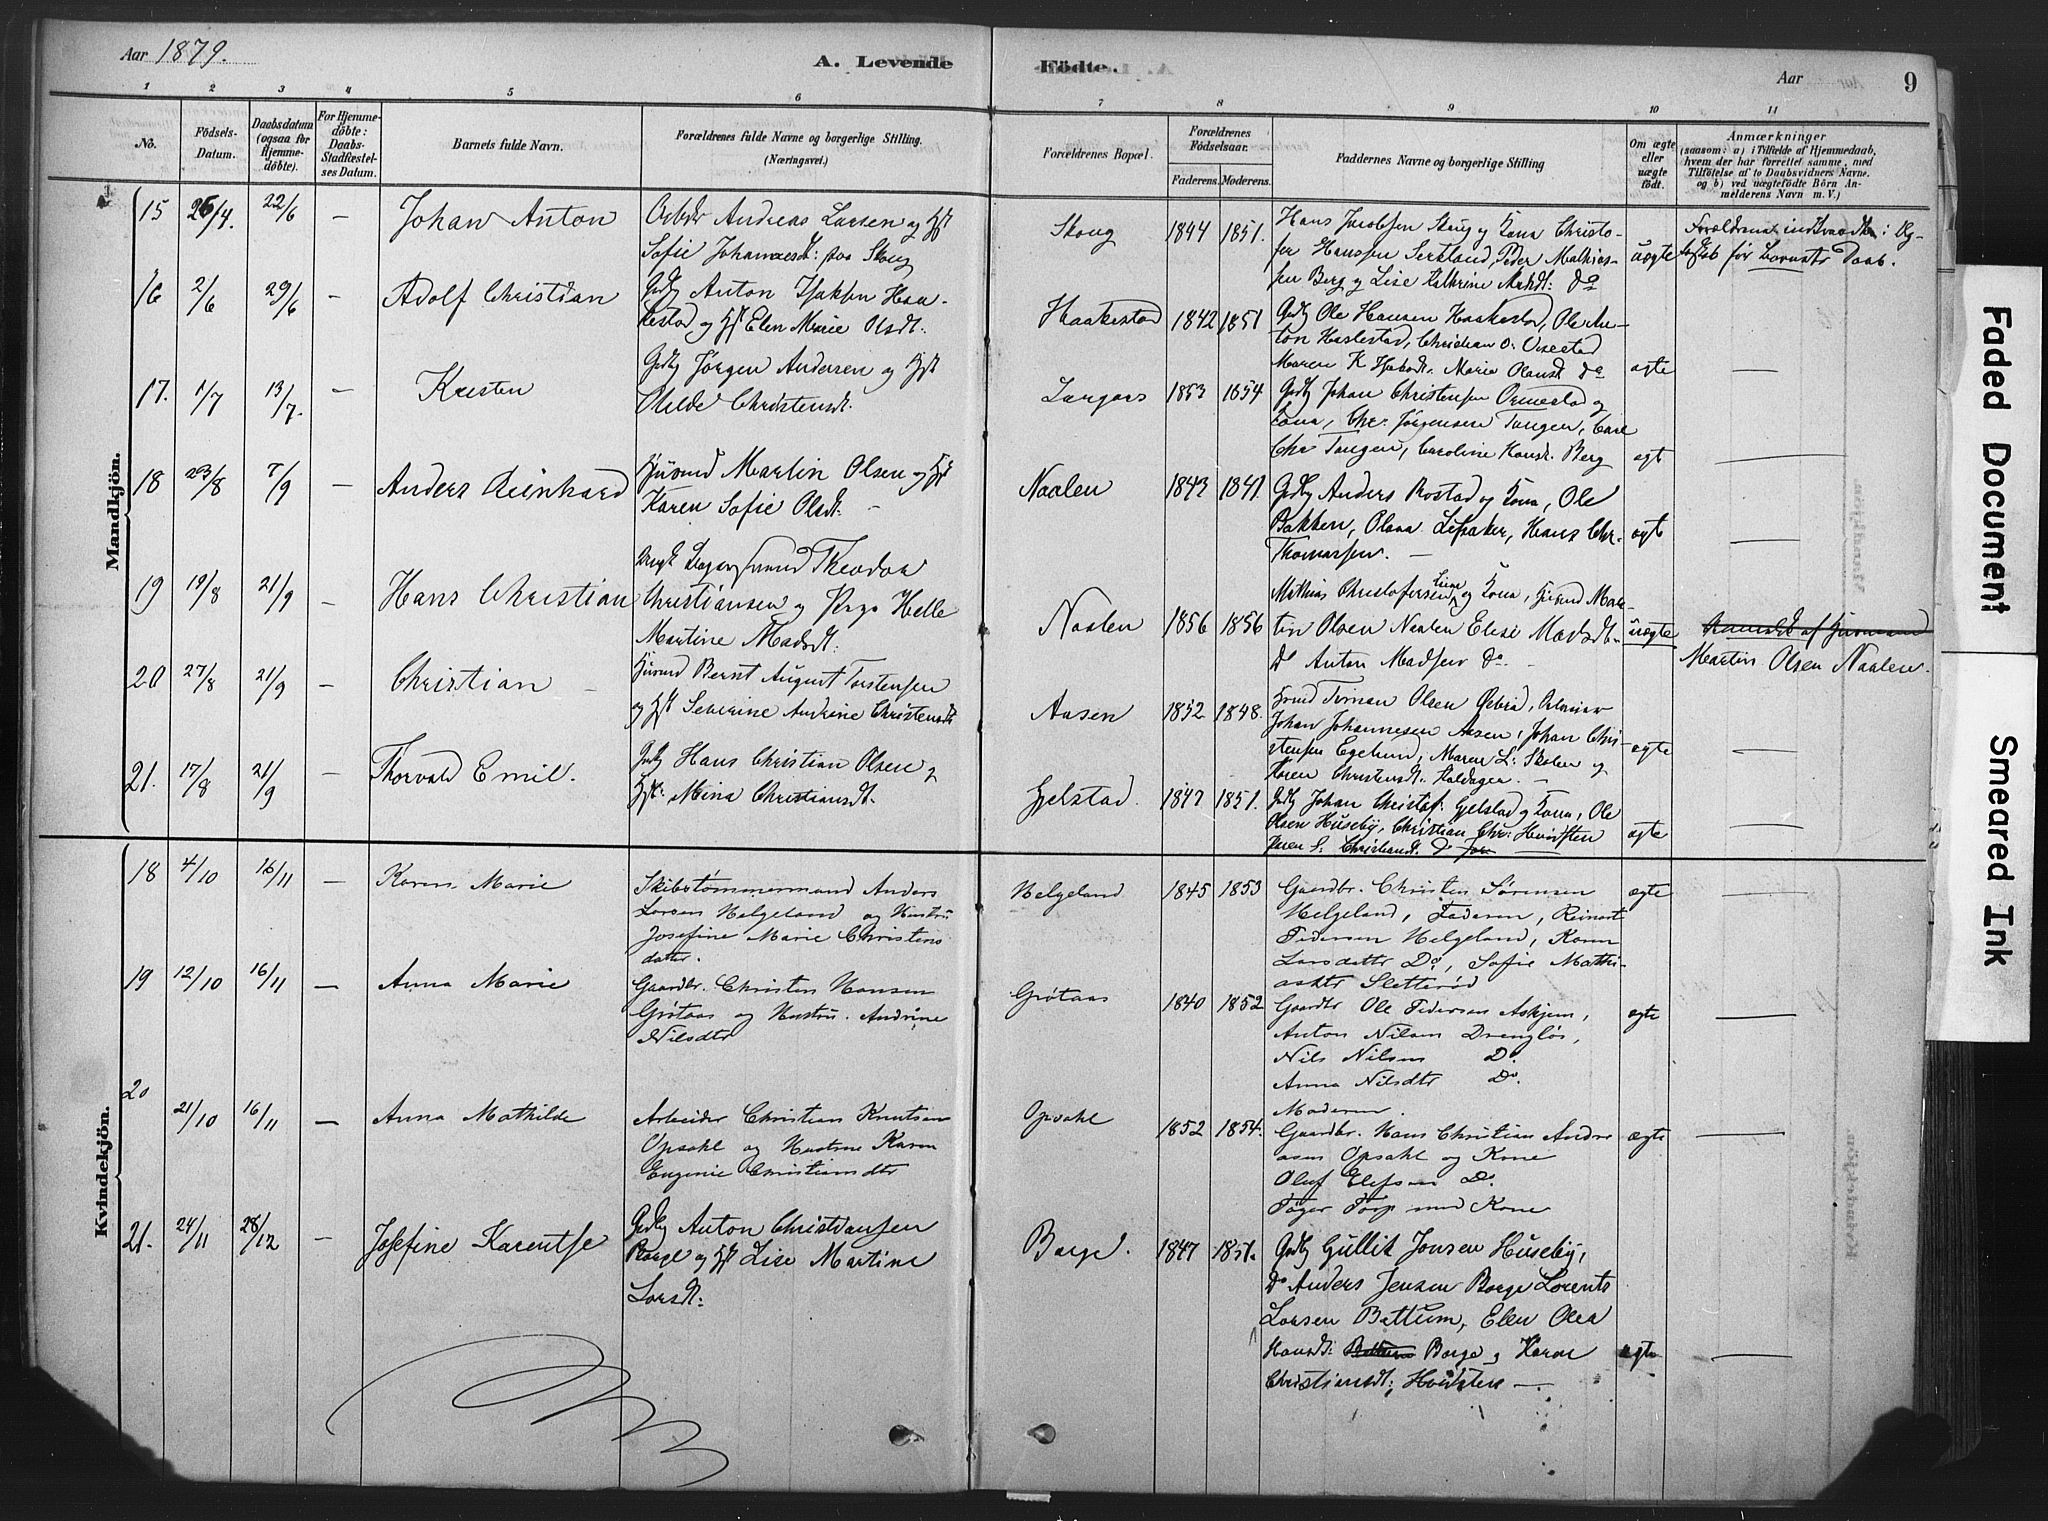 Aar 1879.
A. Levende Födte.
Aar
9
1 2 3 4 5 6 7 8 9 10 11
No.
Födsels-Datum.
Daabsdatum (ogsaa for Hjemmedöbte).
For Hjemmedöbte: Daabs-Stadfæstelses Datum.
Barnets fulde Navn.
Forældrenes fulde Navne og borgerlige Stilling.
(Næringsvei.)
Forældrenes Bopæl.
Forældrenes Födselsaar.
Faderens. Moderens.
Faddernes Navne og borgerlige Stilling
Om ægte eller uægte födt.
Anmærkninger
(saasom: a) i Tilfælde af Hjemmedaab, hvem der har forrettet samme, med Tilföielse af to Daabsvidners Navne. og b) ved uægtefödte Börn Anmelderens Navn m. V.)
Mandkjön.
15 26/4. 22/6 — Johan Anton
Andreas Larsen og
Sofie Johannesdt: paa Skoug
Skoug 1844 1851.
Hans Jacobsen Skoug og Kona Christo-
fer Hanssen Serkland, Peder Mathias-
sen Berg og Lise Kathrine do
uægte
før Barnets Daab.
16 2/6 29/6 — Adolf Christian
Gdbr Anton Isaksen Haa-
kestad og Hst Elen Marie Olsdt.
Haakestad 1842 1851
Gdbr Ole Hansen Haakestad, Ole An-
ton Haslestad, Christian O.
Maren K. Marie do
ægte —
17. 1/7 13/7. — Kristen
Gdbr Jørgen Andersen og Hst
Olilde Christensdt.
1853 1854
Gdbr Johan Christensen Ormestad og
Kona, Chr. Jørgensen Tangen, Carl
Chr Tangen, Caroline Hansdt. Berg
ægt —
18 23/8 7/9 — Anders Reinhard
Husmd Martin Olsen og Hst
Karen Sofie Olsdt. —
Naalen 1843 1841.
Gdbr Anders Rostad og Kona, Ole
Bakken, Olava Lefsaker, Hans Chr.
Thomassen. —
ægte —
19 19/8 21/9 — Hans Christian
Ungk Theodor
Christiansen og Pige Helle
Martine Madsdt:
Naalen 1856 1856
Mathias Christofersen og Kona, Husmd Mar-
tin Olsen Naalen Elise Madsdt.
Do Anton Madsen do —
uægte
Anmeldt af Husmand
Martin Olsen Naalen.
20 27/8 21/9 — Christian —
Husmd Bernt August Torstensen
og Hst Severine Andrine Christensdt
Aasen 1852 1848.
Husmd Timan Olsen
Johan Johannesen Aasen, Johan Chri-
stensen Egelund, Maren L. Skolen og
Karen Christensdt. Haldagen. —
ægte —
21. 17/8 21/9 — Thorvald Emil.
Gdbr Hans Christian Olsen og
Hst: Mina Christiansdt.
Gjelstad. 1847 1851.
Gdbr Johan Christof. Gjelstad og Kona, Ole
Olsen Huseby, Christian Chr: Hvidsten
Karen S. Christiansdt. do
ægte —
Kvindekjön.
18 4/10 16/11 — Karen Marie
Skibstømmermand Anders
Larsen Helgeland og Hustru
Josefine Marie Christens
datter.
Helgeland 1845 1853
Gaardbr. Christen Sörensen
Helgeland, Faderen, Reinart
Pedersen Helgeland, Karen
Larsdatter Do, Sofie Mathi-
asdtr Sletteröd
ægte —
19 12/10 16/11 — Anna Marie
Gaardbr. Christen Hansen
Grötaas og Hustru. Andrine
Nilsdtr
Grötaas 1840 1852
Gaardbr Ole Pedersen Askjem,
Anton Nilsen Drenglös,
Nils Nilsen Do.
Anna Nilsdtr Do.
Moderen.
ægte —
20 21/10 16/11 — Anna Mathilde
Arbeider Christian Knutsen
Opsahl og Hustru Karen
Eugenie Christiansdtr
Opsahl 1852 1854.
Gaardbr. Hans Christian Andre
asen Opsahl og Kone
Oluf Elefsen Do.
Töger Torp med Kone
ægte —
21. 24/11 28/12 — Josefine Karentse
Gdbr Anton Christiansen
Borge og Hst Lise Martine
Larsdt:
Borge. 1847 1851.
Gdbr Gullik Jonsen Huseby,
Do Anders Jensen Borge Lorents
Larsen Bettum, Elen Olea
Hansdt: Borge, Karen
Christiansdt: Hvidsten —
ægte —
Faded Document
Smeared Ink